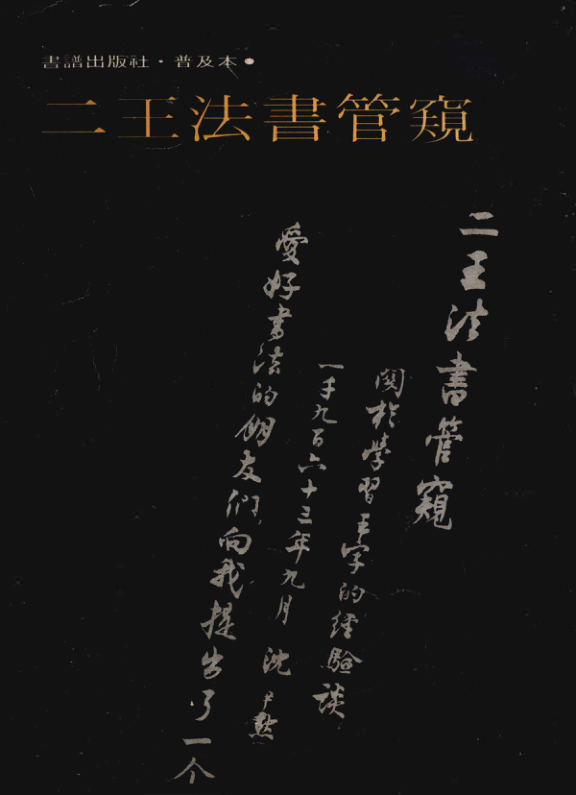 書譜出版社・普及本●
二王法書管窺
二王法書管窺
關於學習王字的經驗談
一千九百六十三年九月 沈尹默
愛好書法的朋友們向我提出了一个